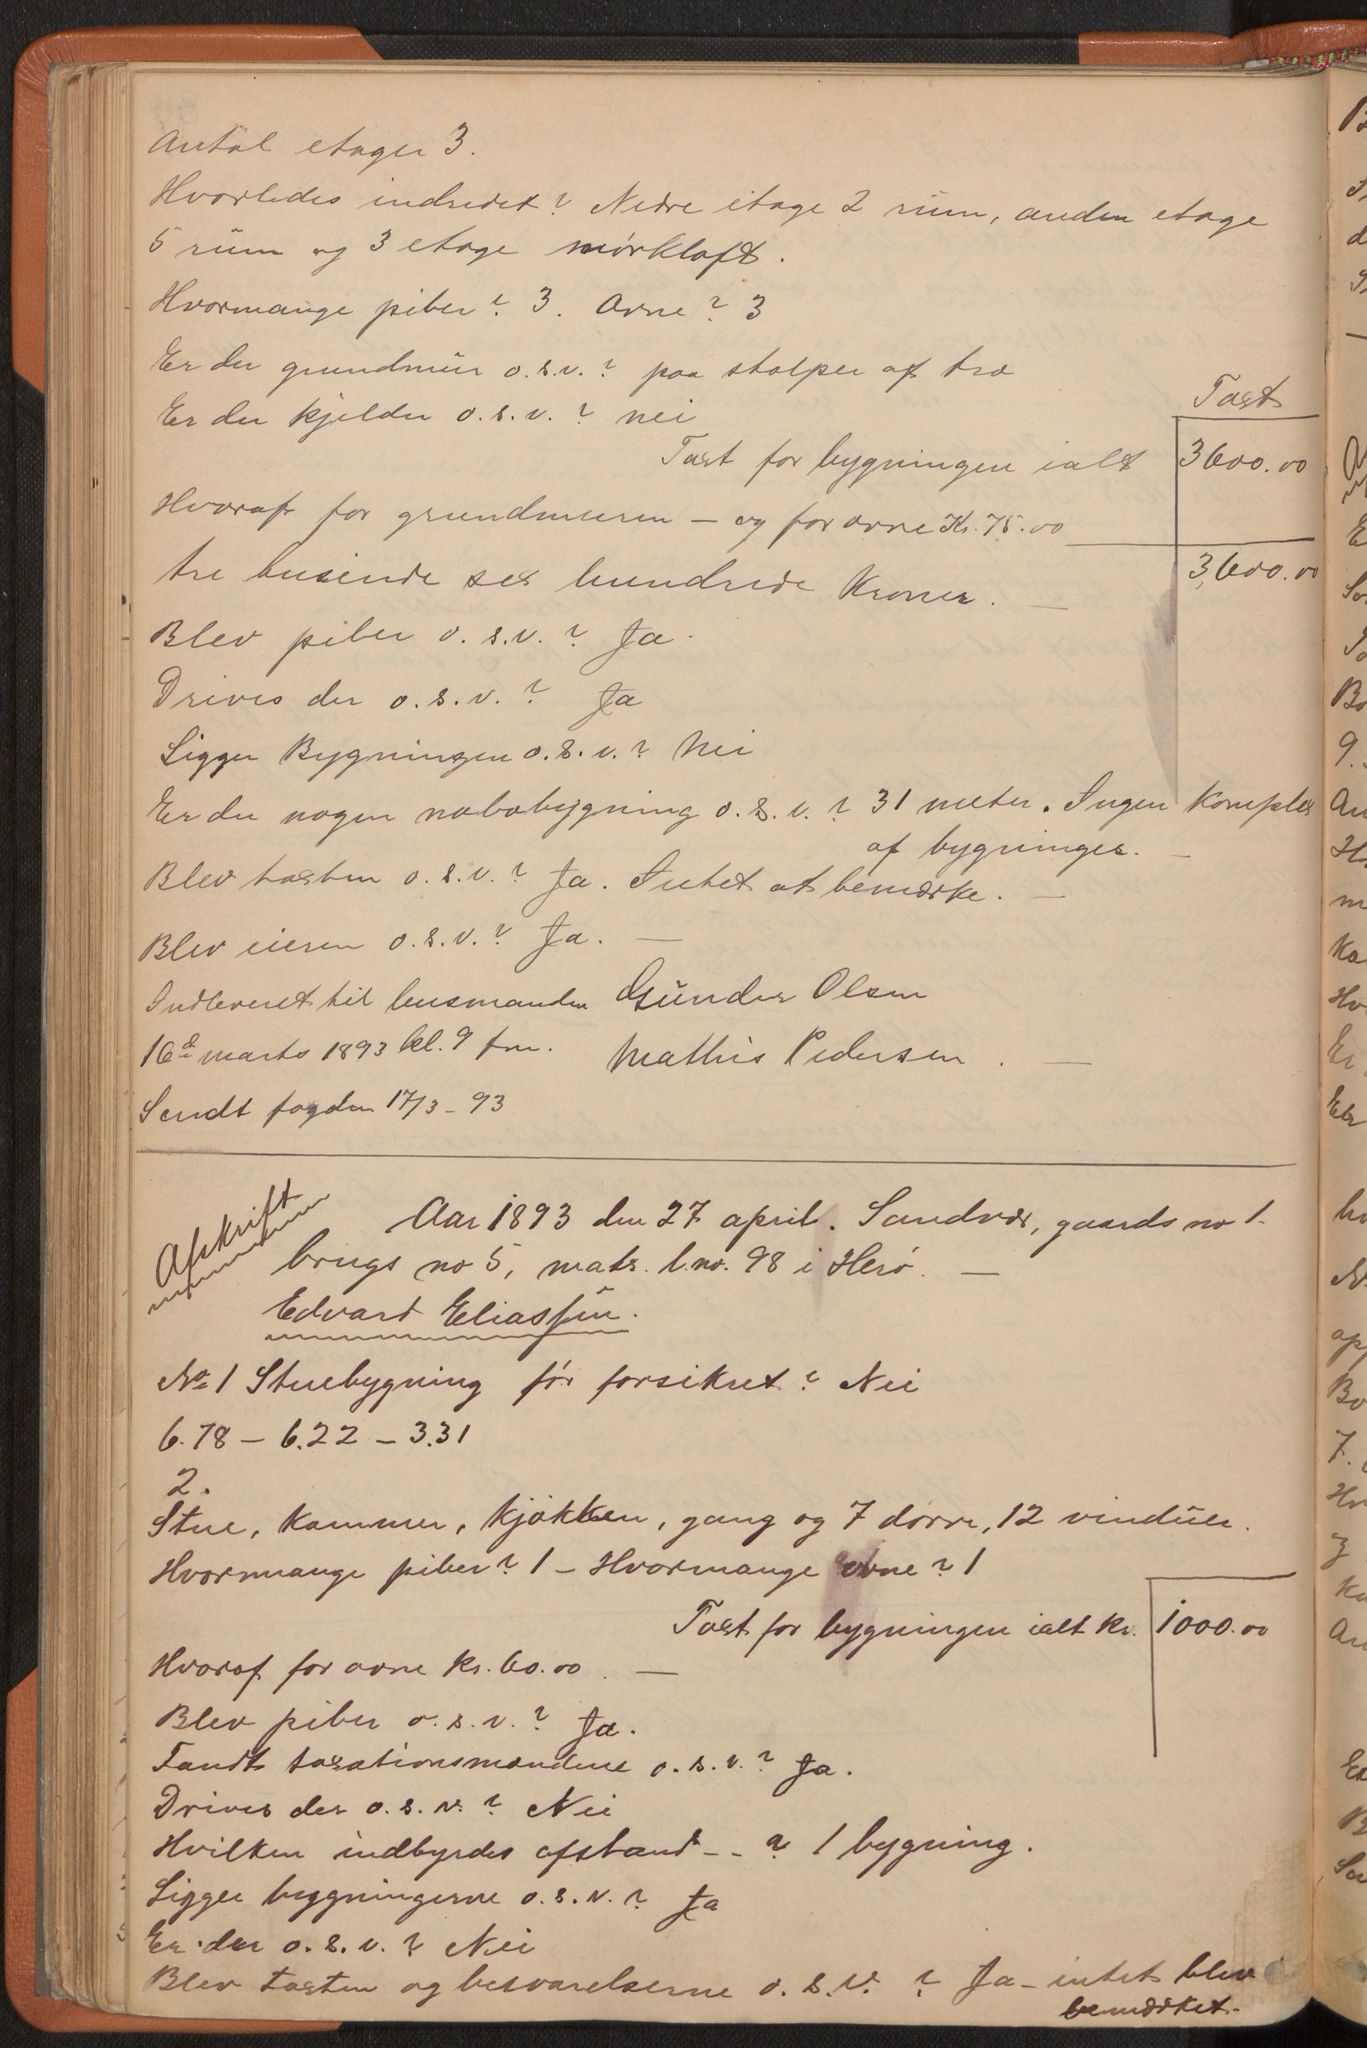 Antal etager 3.
Hvorledes indredet? Nedre etage 2 rum, anden etage
5 rum og 3 etage mørkloft.
Hvormange piber? 3. Ovne? 3
Er der grundmur o.s.v.? paa stolper af træ
Taxt
Er der kjelder o.s.v.? nei
Taxt for bygningen ialt 3600.00
Hvoraf for grundmuren — og for ovne Kr. 75.00
tre tusende sex hundrede Kroner. — 3,600.00
Blev piber o.s.v.? Ja.
Drives der o.s.v.? Ja
Ligger Bygningen o.s.v.? Nei
Er der nogen nabobygning o.s.v.? 31 meter. Ingen Komplex
af bygninger. —
Blev taxten o.s.v.? Ja. Intet at bemærke. —
Blev eieren o.s.v.? Ja. —
Indleveret til lensmanden Gunder Olsen
16de marts 1893 kl. 9 fm. Mathis Pedersen. —
Sendt fogden 17/3-93
Afskrift
Aar 1893 den 27 april. Sandvær, gaards no 1.
brugs no 5, matr. l.no. 98 i Herø. —
Edvard Eliassen.
No 1 Stuebygning før forsikret? Nei
6.78 — 6.22 — 3.31
2.
Stue, Kammer, Kjøkken, gang og 7 dørre, 12 vinduer.
Hvormange piber? 1 — Hvormange ovne? 1
Taxt for bygningen ialt kr. 1000.00
Hvoraf for ovne kr. 60.00. —
Blev piber o.s.v.? Ja.
Fandt taxationsmændene o.s.v.? Ja.
Drives der o.s.v.? Nei
Hvilken indbyrdes afstand -- ? 1 bygning.
Ligger bygningerne o.s.v.? Ja
Er der o.s.v.? Nei
Blev taxten og besvarelserne o.s.v.? Ja — intet blev
bemærket.